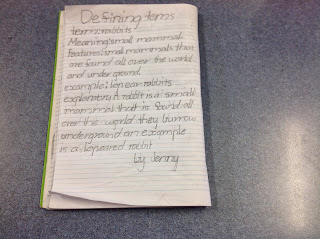 Defining terms
term: rabbits
Meaning: small mammal
Features: small mammals that
are found all over the world
and under ground.
example: lop ear rabbits
explanatory A rabbit is a small
mammal that is found all
over the world they burrow
underground an example
is a lopeared rabbit
by Jenny